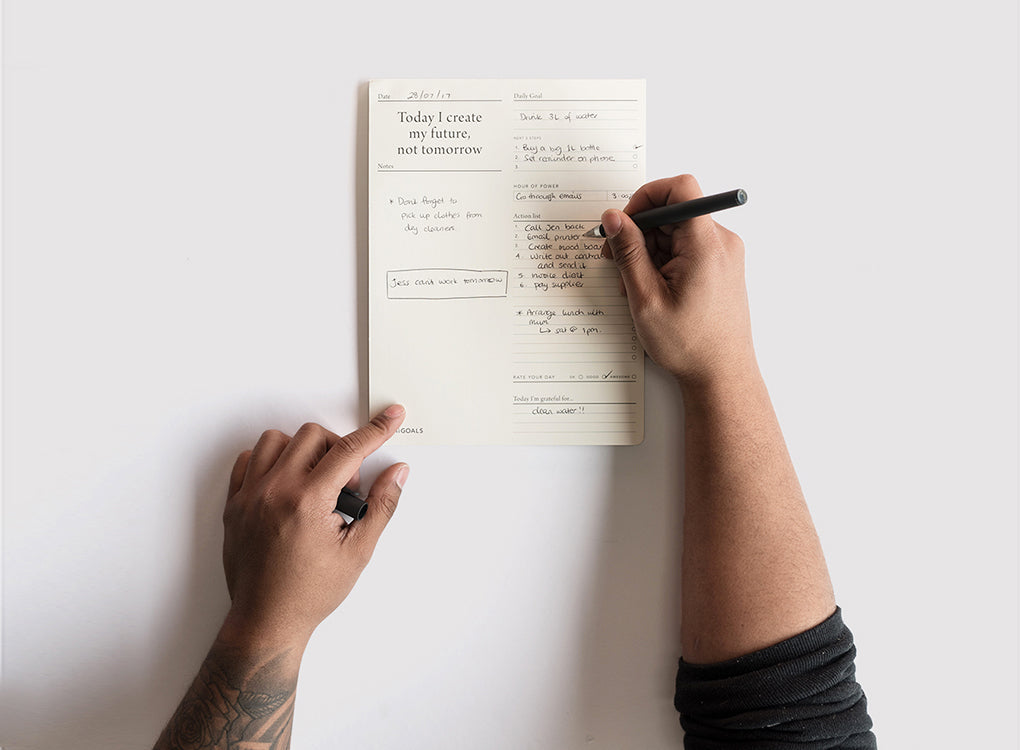 Date 28/07/17
Today I create
my future,
not tomorrow
Notes
* Don't forget to
pick up clothes from
dry cleaners
Jess can't work tomorrow
GOALS
Daily Goal
Drink 3L of water
NEXT 3 STEPS
1. Buy a big 1L bottle
2. Set reminder on phone
3.
HOUR OF POWER
Go through emails 3:00
Action list
1. Call Jen back
2. Email printer
3. Create mood boar
4. Write out contra
and send it
5. invoice client
6. pay supplier
* Arrange lunch with
mum
↳ sat @ 1pm.
RATE YOUR DAY OK GOOD AWESOME
Today I'm grateful for...
clean water!!